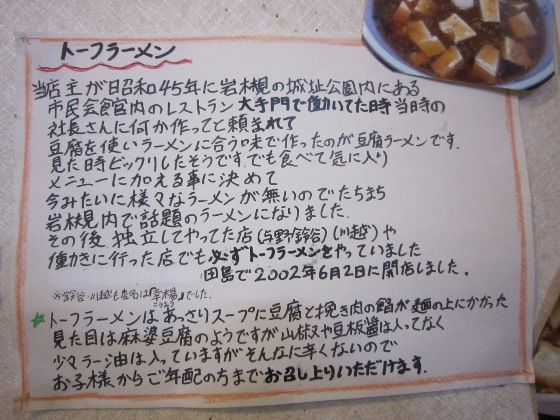 トーフラーメン
当店主が昭和45年に岩槻の城址公園内にある
市民会館内のレストラン大手門で働いてた時当時の
社長さんに何か作ってと頼まれて
豆腐を使いラーメンに合う味で作ったのが豆腐ラーメンです。
見た時ビックリしたそうです。でも食べて気に入り
メニューに加える事に決めて
今みたいに様々なラーメンが無いのでたちまち
岩槻内で話題のラーメンになりました.
その後 独立してやってた店(与野鈴谷)(川越)や
働きに行った店でも必ずトーフラーメンをやっていました
田島で2002年6月2日に開店しました.
※鈴谷・川越も店名は『幸楊』でした.
こうよう
☆トーフラーメンはあっさりスープに豆腐と挽き肉の餡が麺の上にかかった
見た目は麻婆豆腐のようですが山椒や豆板醤は入ってなく
少々ラー油は入っていますがそんなに辛くないので
お子様からご年配の方までお召し上りいただけます.